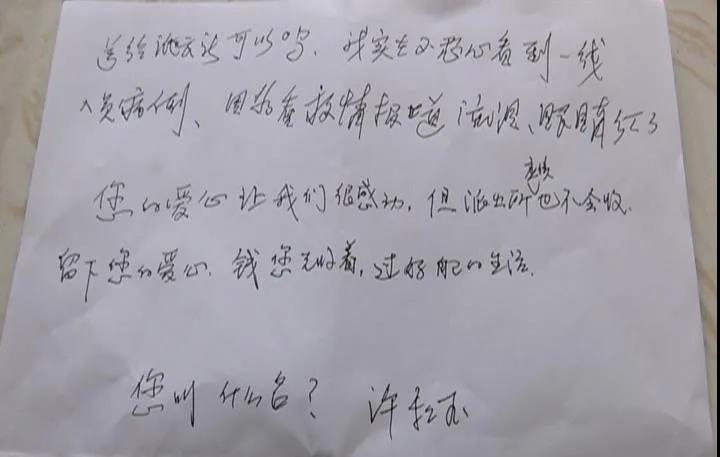 送给派出所可以吗、我实在不忍心看到一线
人员病倒、因为看疫情报道流泪、眼睛红了
您的爱心让我们很感动,但派出所也不会收.
留下您的爱心.钱您先收着,过好自己的生活.
您叫什么名?许